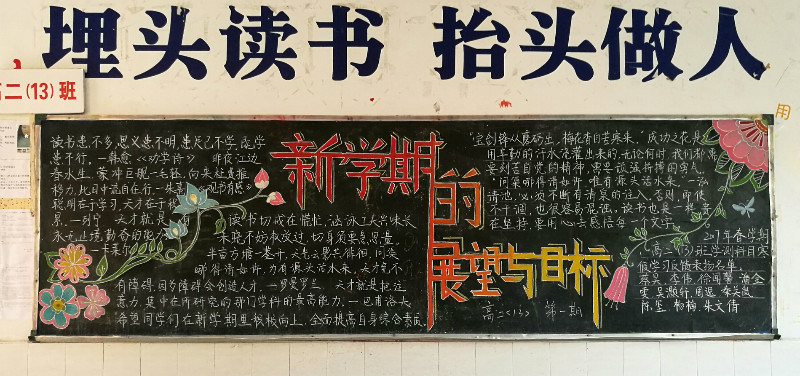 埋头读书 抬头做人
高二(13)班
用
读书患不多,思义患不明,患足己不学,既学
患不行。—韩愈《劝学诗》 昨夜江边
春水生,蒙冲巨舰一毛轻,向来枉费推
移力,此日中流自在行。—朱熹《观书有感》
聪明在于学习,天才在于积
累。—列宁 天才就是
永无止境勤奋的能力
读书切戒在慌忙,涵泳工夫兴味长
未晓不妨权放过,切身须要急思量
半亩方塘一鉴开,天光云影共徘徊,问渠
哪得清如许,为有源头活水来。天才免不
有障碍,因为障碍会创造天才。—罗曼罗兰 天才就是把注
意力,集中在所研究的那门学科的最高能力。—巴甫洛夫
希望同学们在新学期里积极向上,全面提高自身综合素质。
新学期的
展望与目标
高二(13) 第一期
“宝剑锋从磨砺出,梅花香自苦寒来。”成功之花是
用辛勤的汗水浇灌出来的,无论何时,我们都需
要刻苦自觉的精神,需要读书拼搏的勇气。
“问渠哪得清如许,唯有源头活水来。”一
清池,必须不断有清泉的注入,否则,即使
不干涸,也很容易混浊。读书也是一样,贵
在坚持,要用心去感悟每一个文字。
年春学期
高二(13)班学测科目寒
假学习反馈表扬名单
陈莹 杨梅 朱文倩